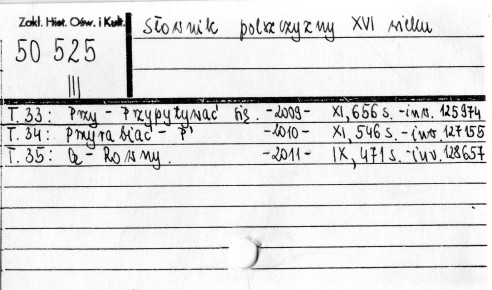 Zakł. Hist. Ośw. i Kult.
Słownik polszczyzny XVI wieku
50 525
III
T. 33: Przy - Przypytywać się. -2009- XI, 656 s. -inw. 125974
T. 34: Przyrabiać - -2010- XI, 546 s. -inw. 127158
T. 35: - Rowny. -2011- IX, 471 s. -inv. 128657